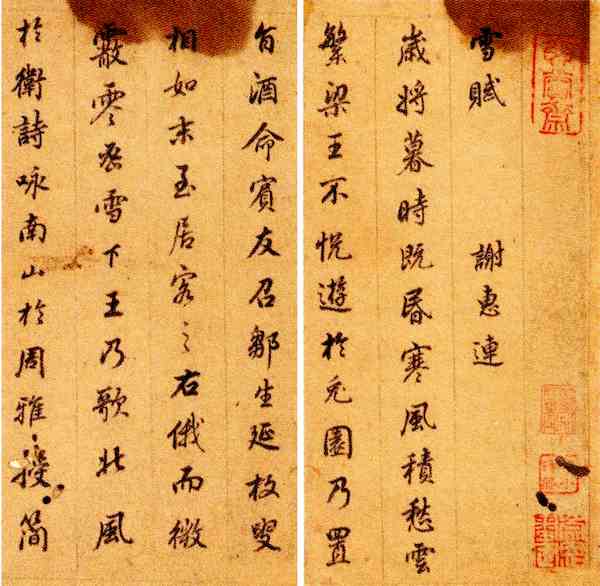 雪賦　謝惠連
歲將暮時既昬寒風積愁雲
繁梁王不悅遊於兔園乃置
旨酒命賓友召鄒生延枚叟
相如末至居客之右俄而微
霰零密雪下王乃歌北風
於衛詩咏南山於周雅授简